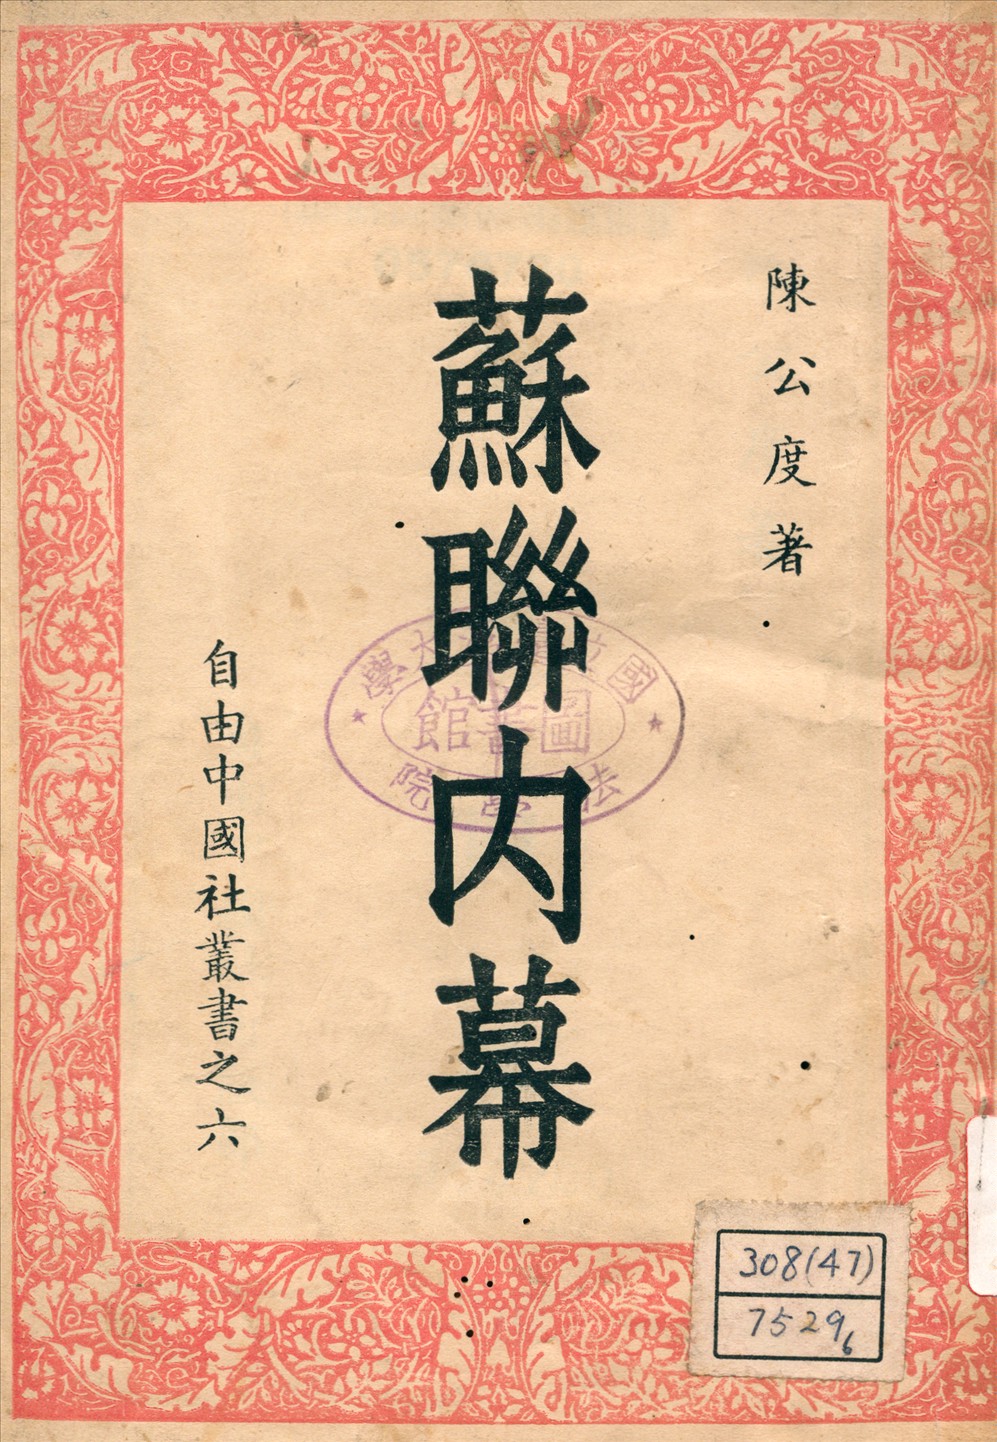 陳公度著
蘇聯內幕
自由中國社叢書之六
國立臺灣大學
圖書館
法學院
308(47)
75296